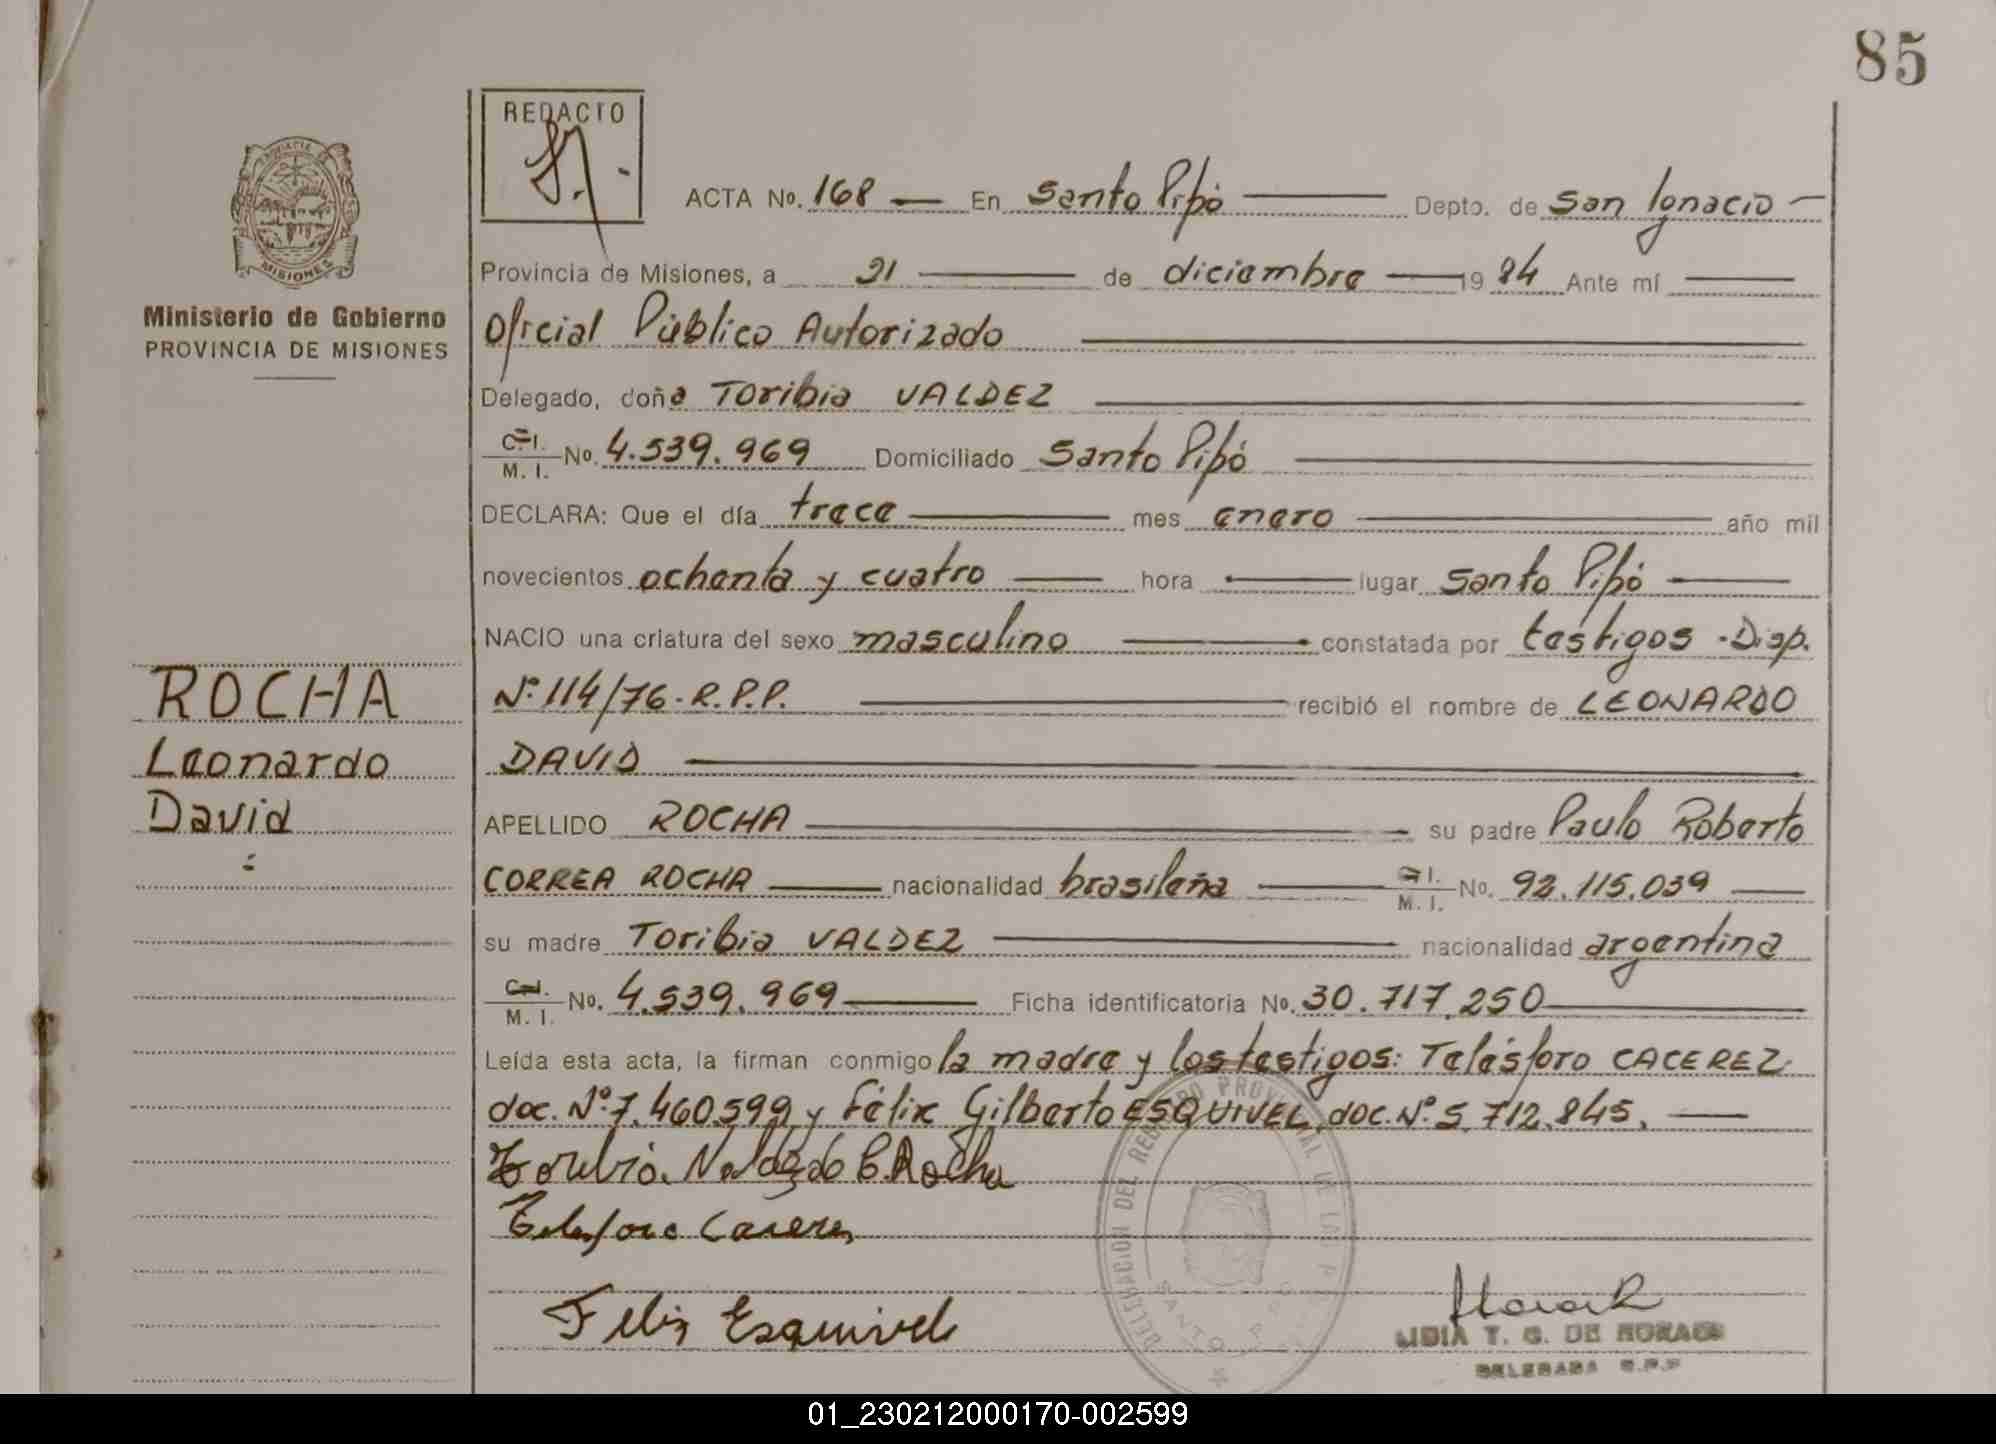 85
REDACTO
ACTA No. 168 — En Santo Pipó — Depto. de San Ignacio —
Provincia de Misiones, a 21 — de diciembre — 19 84 Ante mí —
Oficial Público Autorizado —
Delegado, doña Toribia VALDEZ —
C. I. M. I. No. 4.539.969 Domiciliado Santo Pipó —
DECLARA: Que el día trece — mes enero — año mil
novecientos ochenta y cuatro — hora — lugar Santo Pipó —
NACIO una criatura del sexo masculino — constatada por testigos - Disp.
Nº 114/76 - R.P.P. — recibió el nombre de LEONARDO
DAVID —
APELLIDO ROCHA — su padre Paulo Roberto
CORREA ROCHA — nacionalidad brasileña — C. I. M. I. No. 92.115.039 —
su madre Toribia VALDEZ — nacionalidad argentina
C. I. M. I. No. 4.539.969 — Ficha identificatoria No. 30.717.250 —
Leída esta acta, la firman conmigo la madre y los testigos: Telésforo CACEREZ
doc. Nº 7.460.599 y Félix Gilberto ESQUIVEL, doc. Nº 5.712.845, —
Telesforo Caceres
Felix Esquivel
PROVINCIA DE MISIONES
Ministerio de Gobierno
PROVINCIA DE MISIONES
ROCHA
Leonardo
David
DELEGACION DEL REGISTRO PROVINCIAL DE LAS
SANTO
LIDIA T. G. DE MORAES
DELEGADA R.P.P
01_230212000170-002599